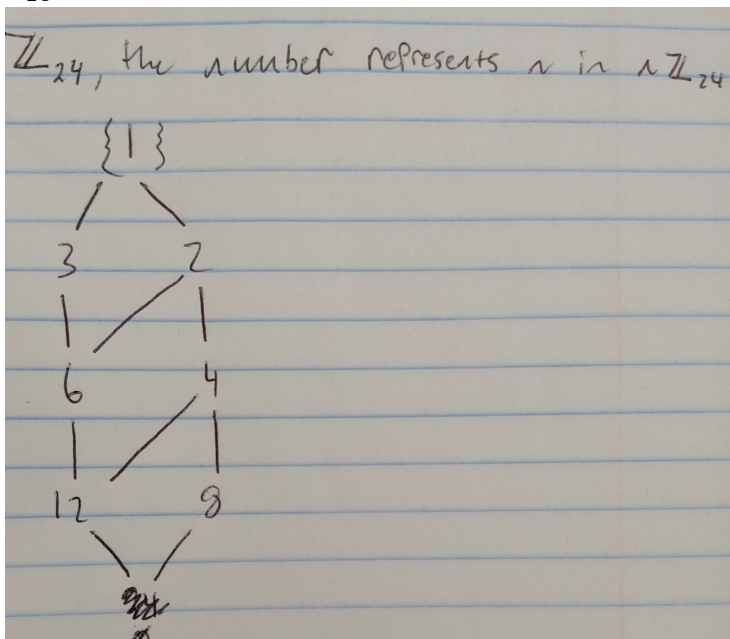 ℤ₂₄, the number represents n in nℤ₂₄
{1}
3 2
6 4
12 8